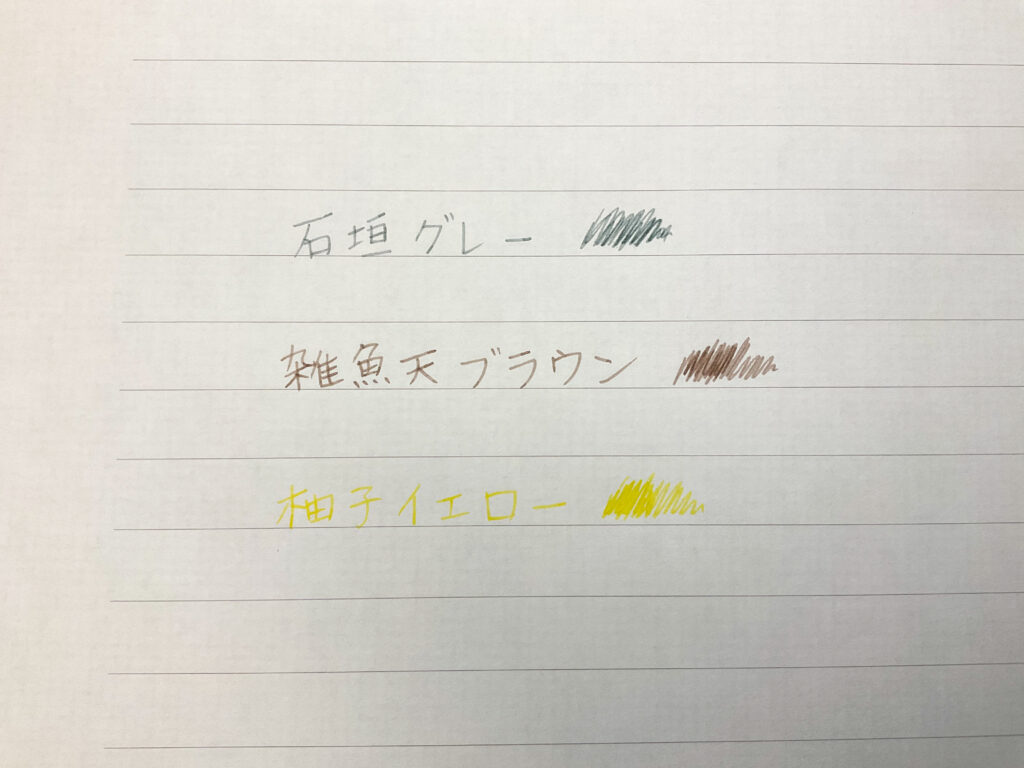 石垣グレー
雑魚天ブラウン
柚子イエロー